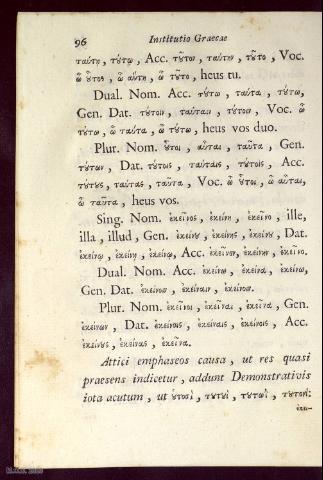 96 Institutio Graecae
ταύτῃ, τύτῳ, Acc. τῦτον, ταύτην, τῦτο, Voc.
ὦ ὗτος, ὦ αὕτη, ὦ τῦτο, heus tu.
Dual. Nom. Acc. τύτω, ταύτα, τύτω,
Gen. Dat. τύτοιν, ταύταιν, τύτοιν, Voc. ὦ
τύτω, ὦ ταύτα, ὦ τύτω, heus vos duo.
Plur. Nom. ὗτοι, αὗται, ταῦτα, Gen.
τύτων, Dat. τύτοις, ταύταις, τύτοις, Acc.
τύτυς, ταύτας, ταῦτα, Voc. ὦ ὗτοι, ὦ αὗται,
ὦ ταῦτα, heus vos.
Sing. Nom. ἐκεῖνος, ἐκείνη, ἐκεῖνο, ille,
illa, illud, Gen. ἐκείνυ, ἐκείνης, ἐκείνυ, Dat.
ἐκείνῳ, ἐκείνῃ, ἐκείνῳ, Acc. ἐκεῖνον, ἐκείνην, ἐκεῖνο.
Dual. Nom. Acc. ἐκείνω, ἐκείνα, ἐκείνω,
Gen. Dat. ἐκείνοιν, ἐκείναιν, ἐκείνοιν.
Plur. Nom. ἐκεῖνοι, ἐκεῖναι, ἐκεῖνα, Gen.
ἐκείνων, Dat. ἐκείνοις, ἐκείναις, ἐκείνοις, Acc.
ἐκείνυς, ἐκείνας, ἐκεῖνα.
Attici emphaseos causa, ut res quasi
praesens indicetur, addunt Demonstrativis
iota acutum, ut ὑτοσί, τυτυί, τυτωί, τυτονί:
ἐκει-